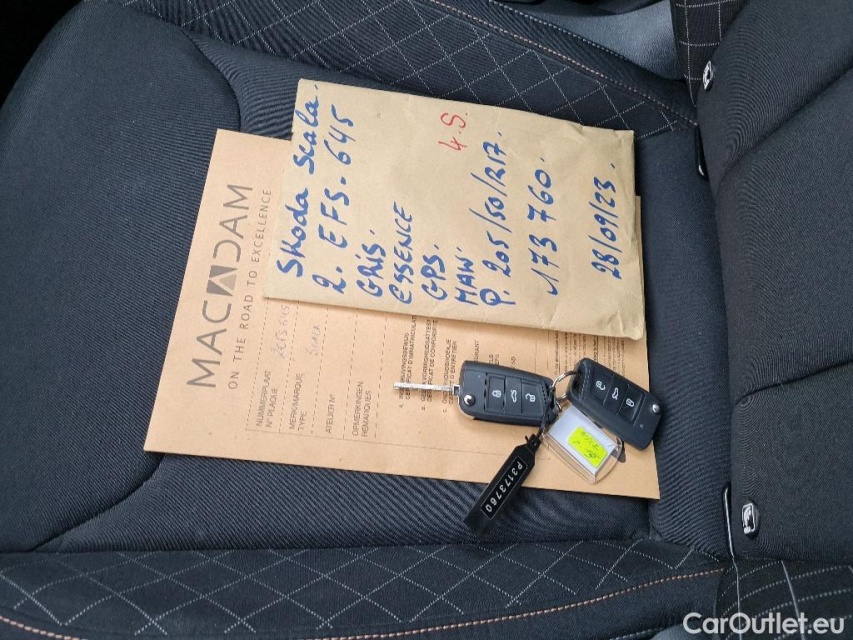 Skoda Scala.
2. EFS. 645
GRIS.
ESSENCE
GPS.
MAN.
P. 205/50/R17.
173 760.
28/09/23.
4.S.
MACADAM
ON THE ROAD TO EXCELLENCE
NUMMERPLAAT
N° PLAQUE
MERK/MARQUE
TYPE
ATELIER N°
OPMERKINGEN
REMARQUES
P3173760
CarOutlet.eu